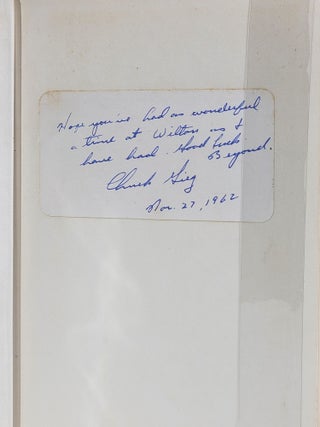 Hope you've had as wonderful
a time at Wilton as I
have had. Good luck
Beyond.
Chuck Gieg
Nov. 27, 1962